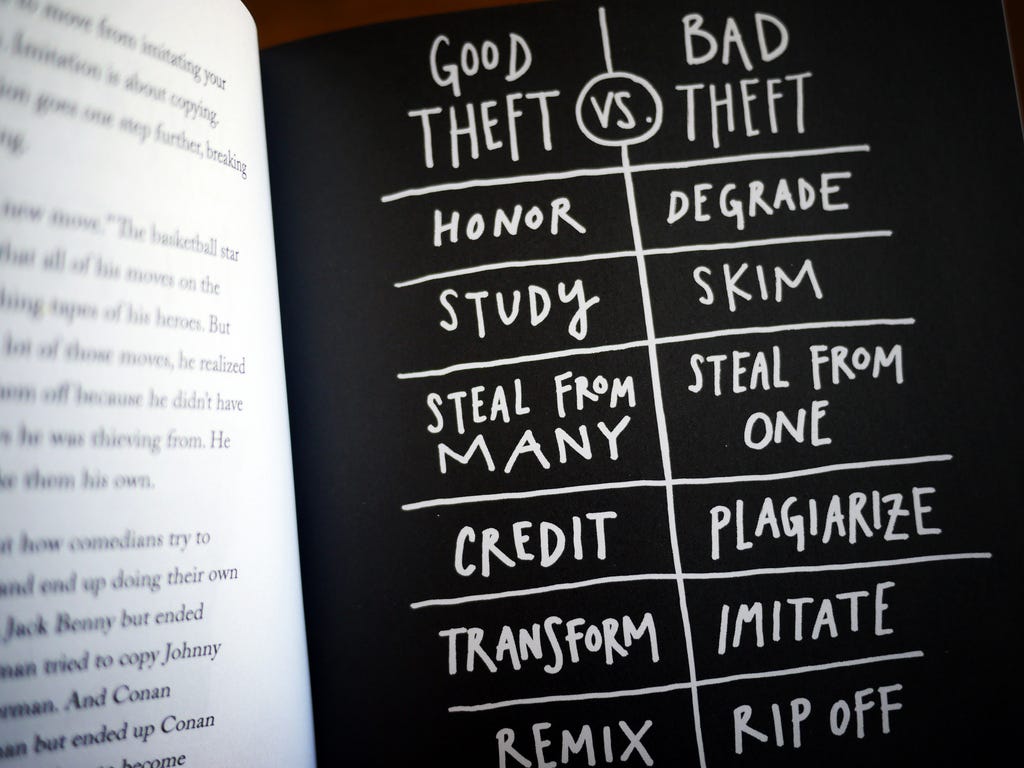 to move from imitating your
. Imitation is about copying.
ion goes one step further, breaking
ng.
new move." The basketball star
that all of his moves on the
hing tapes of his heroes. But
lot of those moves, he realized
em off because he didn't have
s he was thieving from. He
ke them his own.
t how comedians try to
and end up doing their own
Jack Benny but ended
man tried to copy Johnny
rman. And Conan
man but ended up Conan
become
GOOD
THEFT
VS.
BAD
THEFT
HONOR
DEGRADE
STUDY
SKIM
STEAL FROM
MANY
STEAL FROM
ONE
CREDIT
PLAGIARIZE
TRANSFORM
IMITATE
REMIX
RIP OFF